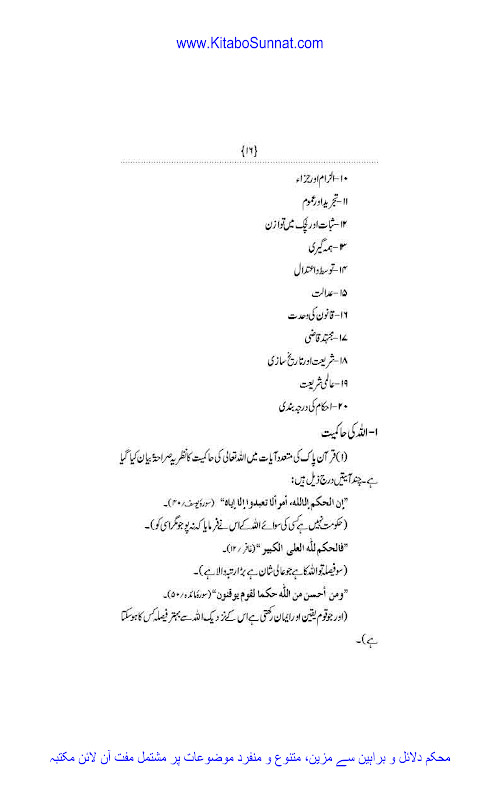 www.KitaboSunnat.com
{۱۶}
۱۰-الزام اور جزاء
۱۱-تجرید اور عموم
۱۲-ثبات اور لچک میں توازن
۱۳-ہمہ گیری
۱۴-توسط و اعتدال
۱۵-عدالت
۱۶-قانون کی وحدت
۱۷-مجتہد قاضی
۱۸-شریعت اور تاریخ سازی
۱۹-عالمی شریعت
۲۰-احکام کی درجہ بندی
۱-اللہ کی حاکمیت
(۱) قرآن پاک کی متعدد آیات میں اللہ تعالی کی حاکمیت کا نظریہ صراحتاً بیان کیا گیا
ہے۔ چند آیتیں درج ذیل ہیں:
”إن الحكم إلا لله، أمر ألا تعبدوا إلا إياه“ (سورۂ یوسف؍۴۰)۔
(حکومت نہیں ہے کسی کی سوائے اللہ کے اس نے فرمایا کہ نہ پوجو مگر اسی کو)۔
”فالحكم لله العلى الكبير“ (غافر؍۱۲)۔
(سو فیصلہ تو اللہ کا ہے جو عالی شان ہے بڑا رتبہ والا ہے)۔
”ومن أحسن من الله حكما لقوم يوقنون“ (سورۂ مائدہ؍۵۰)۔
(اور جو قوم یقین اور ایمان رکھتی ہے اس کے نزدیک اللہ سے بہتر فیصلہ کس کا ہو سکتا
ہے)۔
محکم دلائل و براہین سے مزین، متنوع و منفرد موضوعات پر مشتمل مفت آن لائن مکتبہ